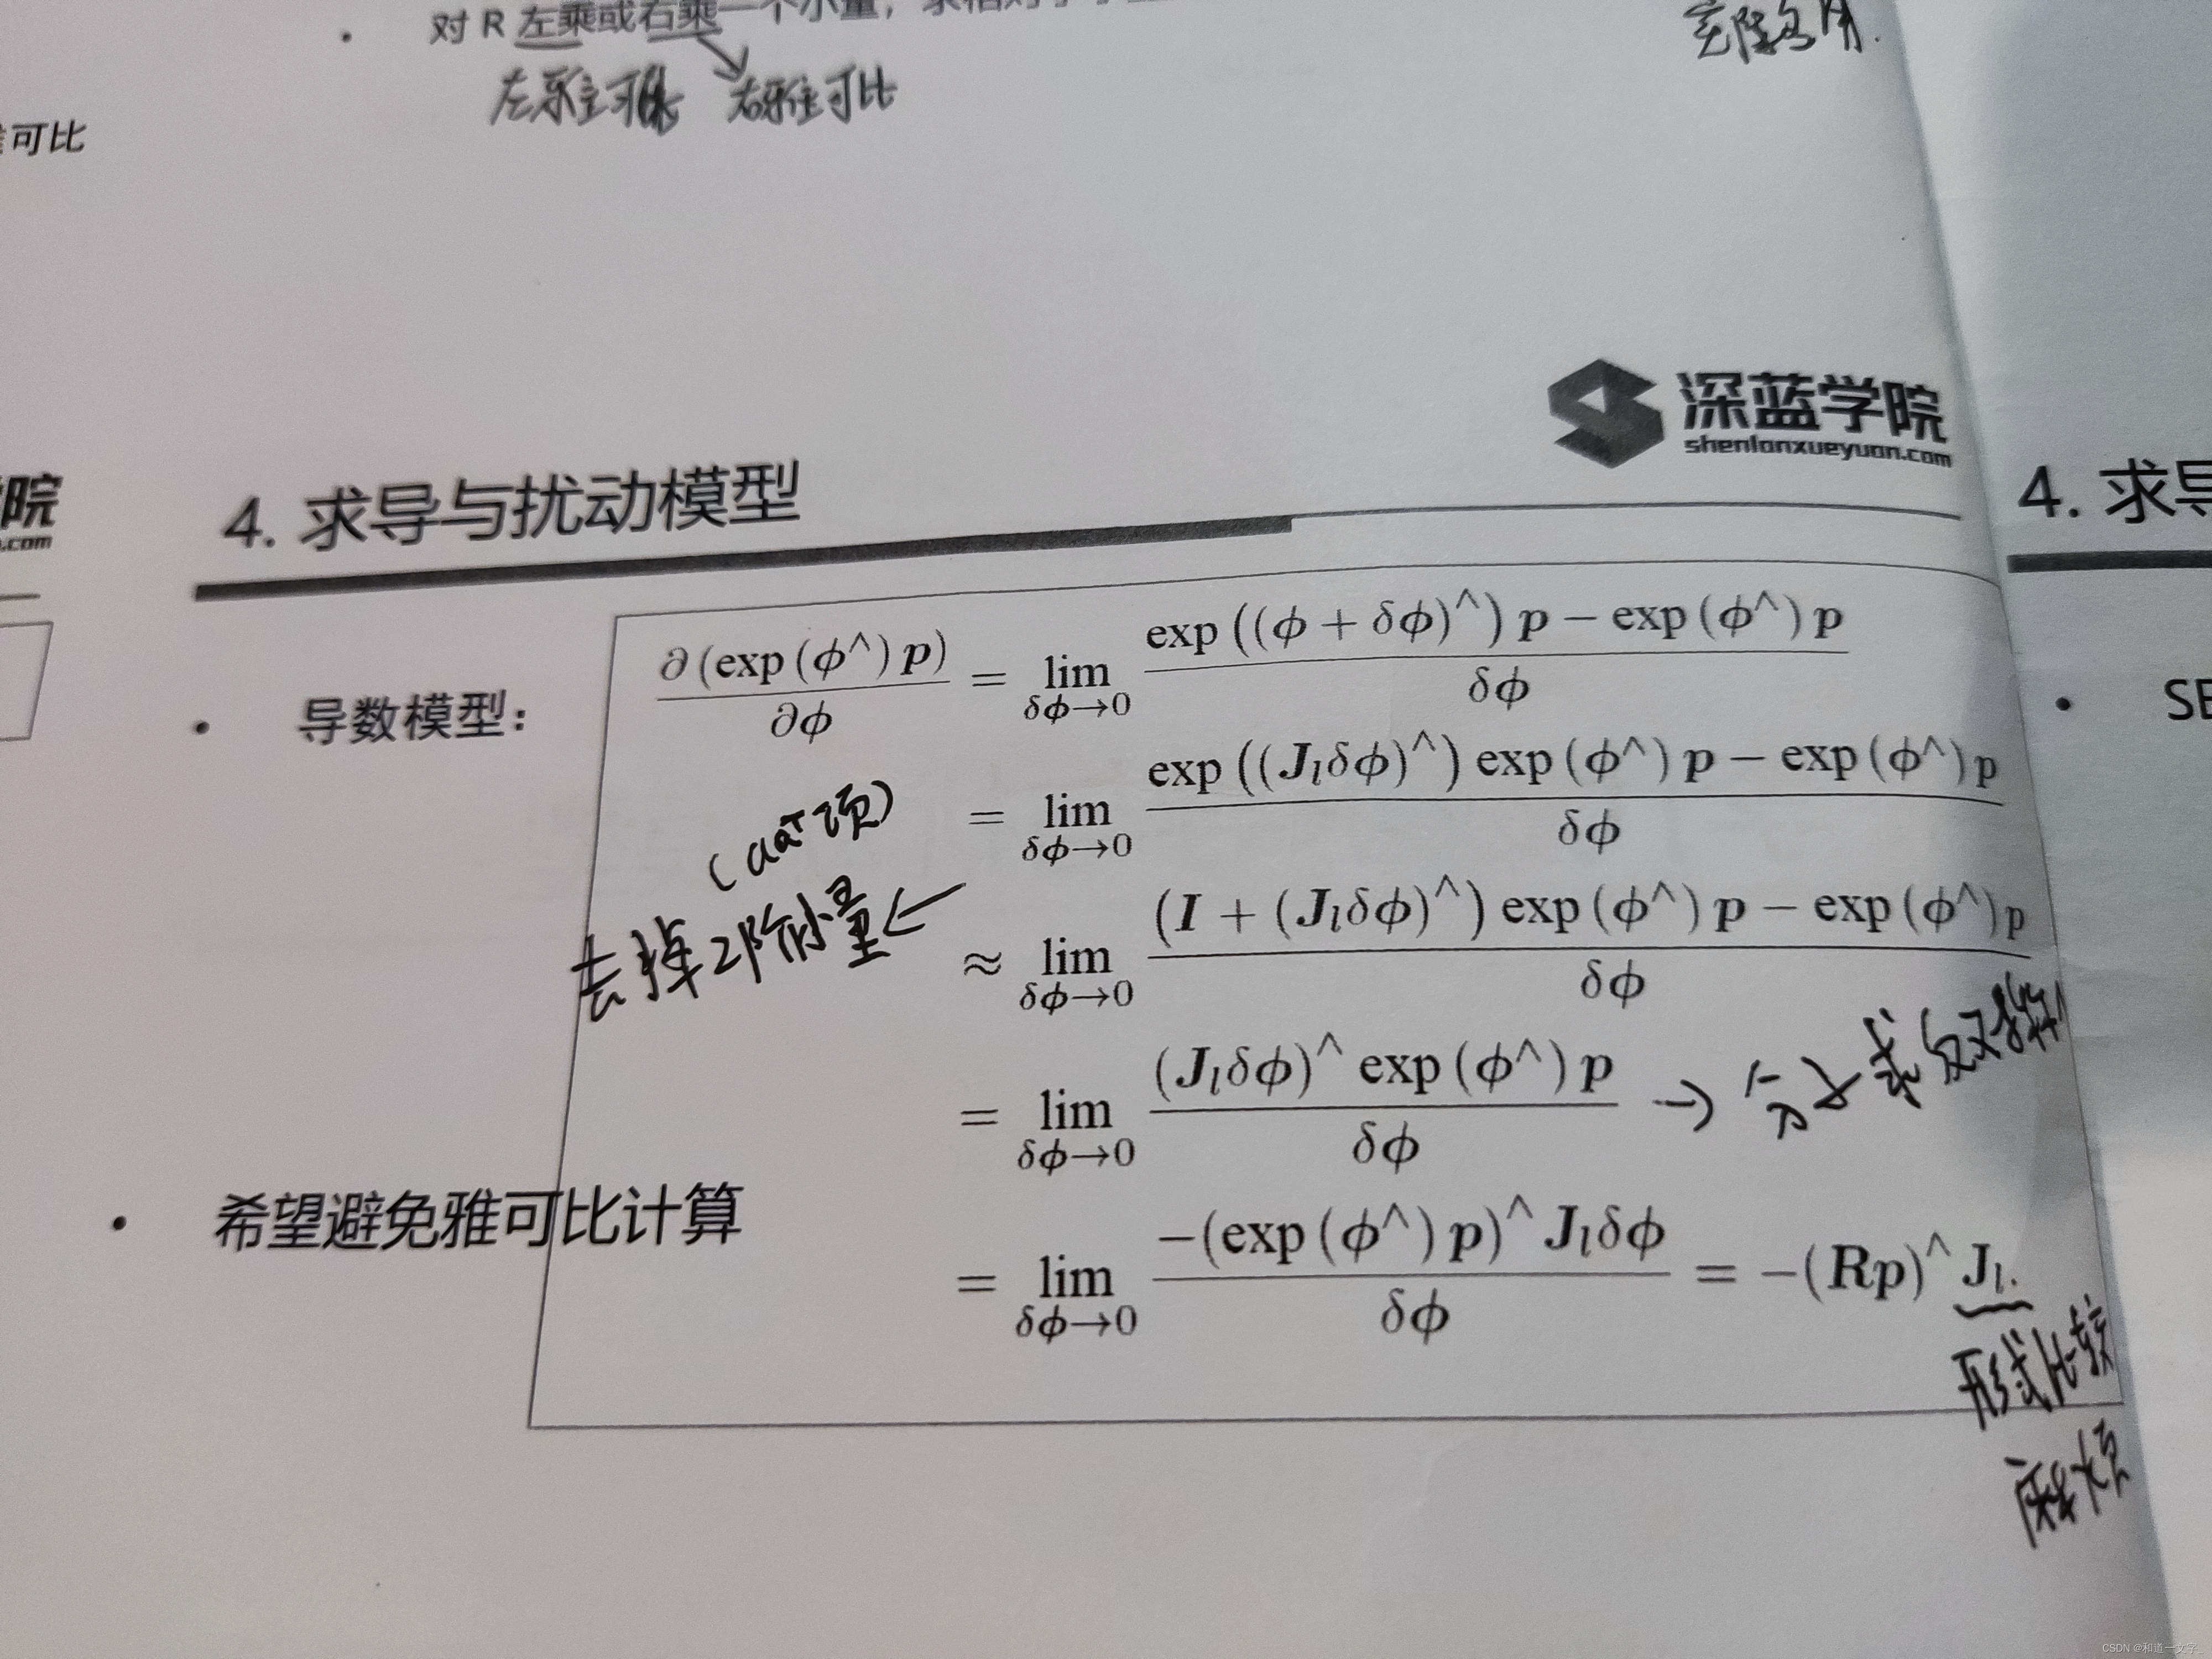 对 R 左乘或右乘一个小量,
左雅可比 右雅可比
可比
深蓝学院
shenlanxueyuan.com
院
.com
4. 求导与扰动模型
4. 求导
• 导数模型:
∂(exp(ϕ^)p)/∂ϕ = lim δϕ→0 (exp((ϕ + δϕ)^)p − exp(ϕ^)p)/δϕ
= lim δϕ→0 (exp((Jₗδϕ)^) exp(ϕ^)p − exp(ϕ^)p)/δϕ
(aaᵀ项)
去掉2阶小量 ←
≈ lim δϕ→0 ((I + (Jₗδϕ)^) exp(ϕ^)p − exp(ϕ^)p)/δϕ
= lim δϕ→0 ((Jₗδϕ)^ exp(ϕ^)p)/δϕ → 分子求反对称
• 希望避免雅可比计算
= lim δϕ→0 (−(exp(ϕ^)p)^ Jₗδϕ)/δϕ = −(Rp)^ Jₗ.
形式比较
• SE
CSDN @和道一文字